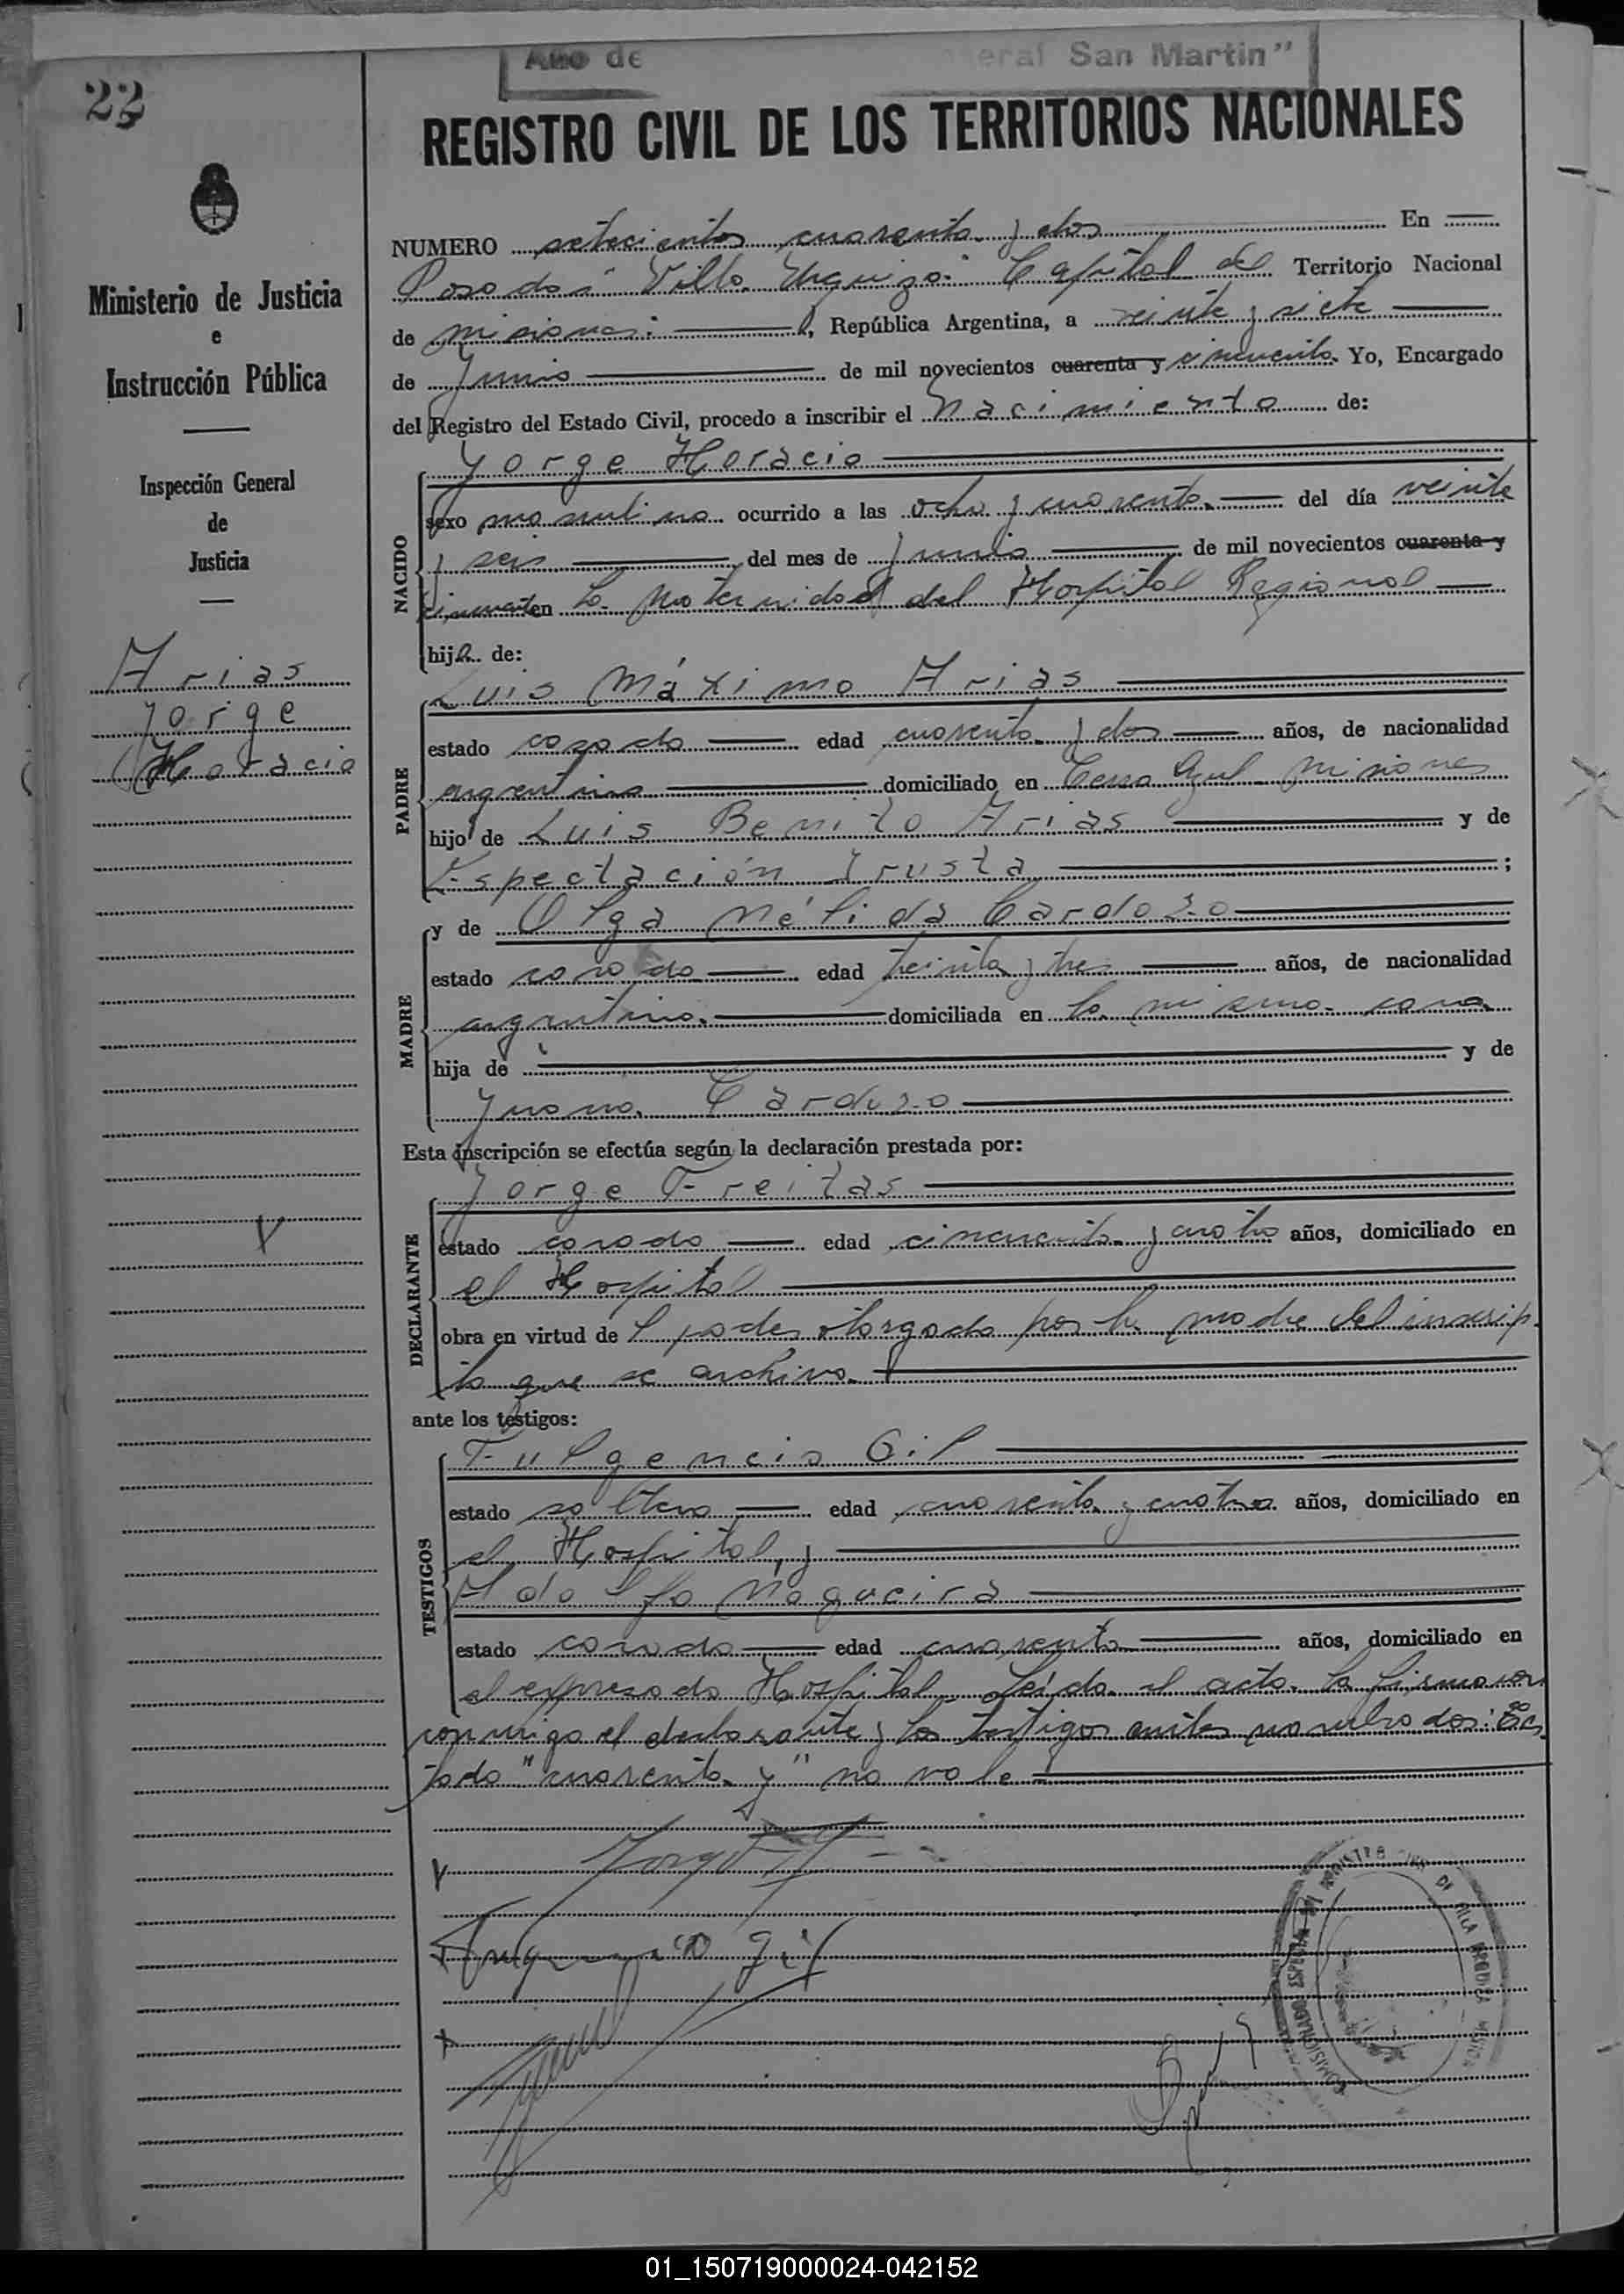 Año de eral San Martin"
22
REGISTRO CIVIL DE LOS TERRITORIOS NACIONALES
Ministerio de Justicia
e
Instrucción Pública
Inspección General
de
Justicia
Arias
Jorge
Horacio
NUMERO setecientos cuarenta y dos En
Posadas Villa Urquiza Capital del Territorio Nacional
de Misiones, República Argentina, a veinte y siete
de Junio de mil novecientos cuarenta y cincuenta. Yo, Encargado
del Registro del Estado Civil, procedo a inscribir el Nacimiento de:
NACIDO
Jorge Horacio
sexo masculino ocurrido a las ocho y cuarenta del día veinte
y seis del mes de Junio de mil novecientos cuarenta y
cincuenta en la Maternidad del Hospital Regional
hijo de:
PADRE
Luis Máximo Arias
estado casado edad cuarenta y dos años, de nacionalidad
argentina domiciliado en Cerro Azul Misiones
hijo de Luis Benito Arias y de
Espectación Irusta ;
MADRE
y de Olga Nélida Cardozo
estado casada edad treinta y tres años, de nacionalidad
argentina domiciliada en la misma casa
hija de y de
Juana Cardozo
Esta inscripción se efectúa según la declaración prestada por:
DECLARANTE
Jorge Freitas
estado casado edad cincuenta y cuatro años, domiciliado en
el Hospital
obra en virtud de l poder otorgado por la madre del inscrip-
to que se archiva.
ante los testigos:
TESTIGOS
Fulgencio Gil
estado soltero edad cuarenta y cuatro años, domiciliado en
el Hospital, y
Adolfo Nogueira
estado casado edad cuarenta años, domiciliado en
el expresado Hospital Leída el acta la firmaron
conmigo el declarante y los testigos antes nombrados: Tes-
tado "cuarenta y" no vale
Fulgencio Gil
01_150719000024-042152